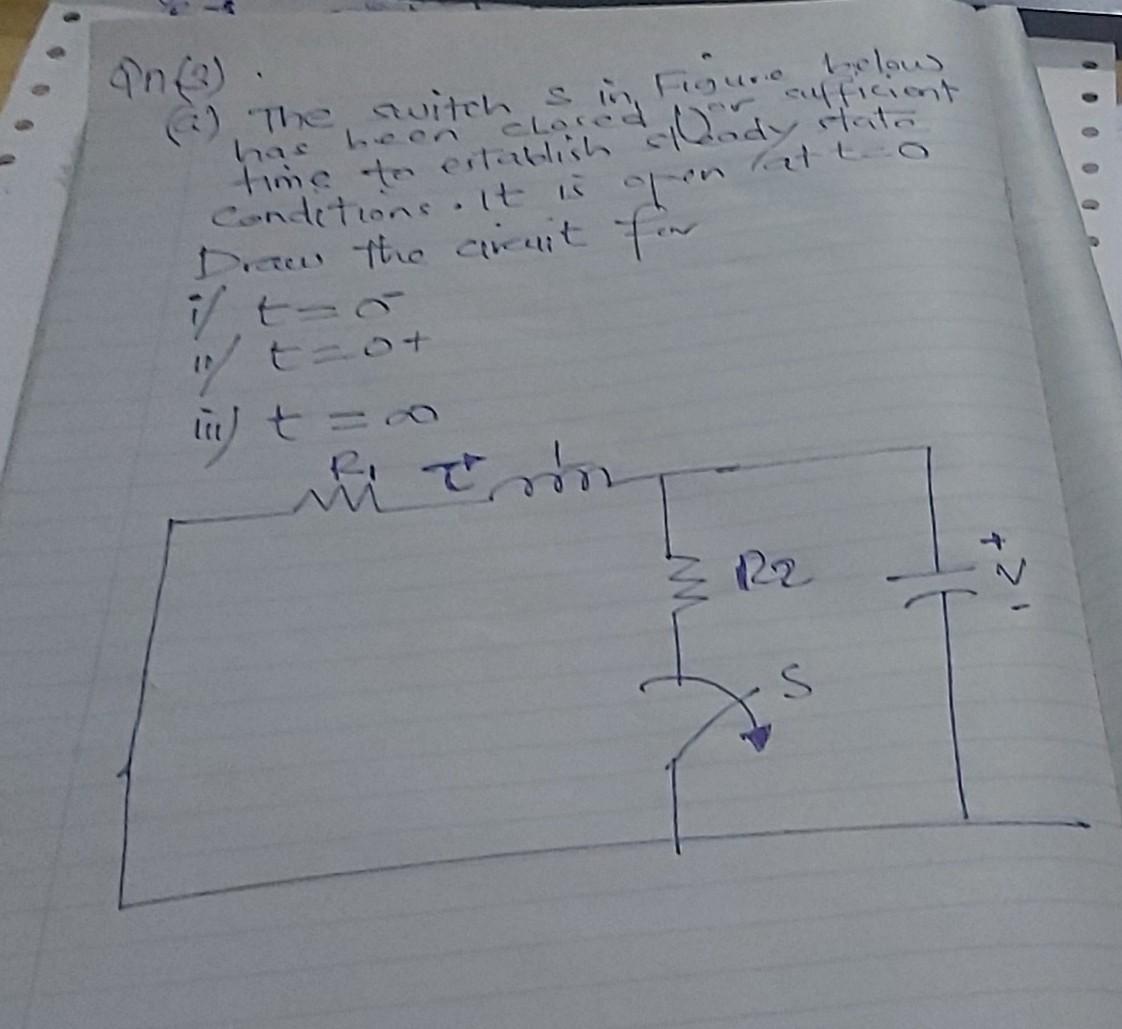 Qn(3).
(i) The switch S in Figure below
has been closed for sufficient
time to establish steady state
conditions. It is open at t=0
Draw the circuit for
i/ t=0-
ii/ t=0+
iii) t=∞
R1
R2
+
V
-
S